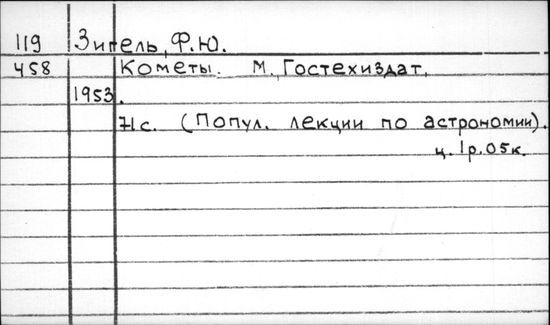 119 Зигель, Ф.Ю.
458 Кометы. М., Гостехиздат,
1953.
71с. (Попул. лекции по астрономии).
ц. 1р. 05к.